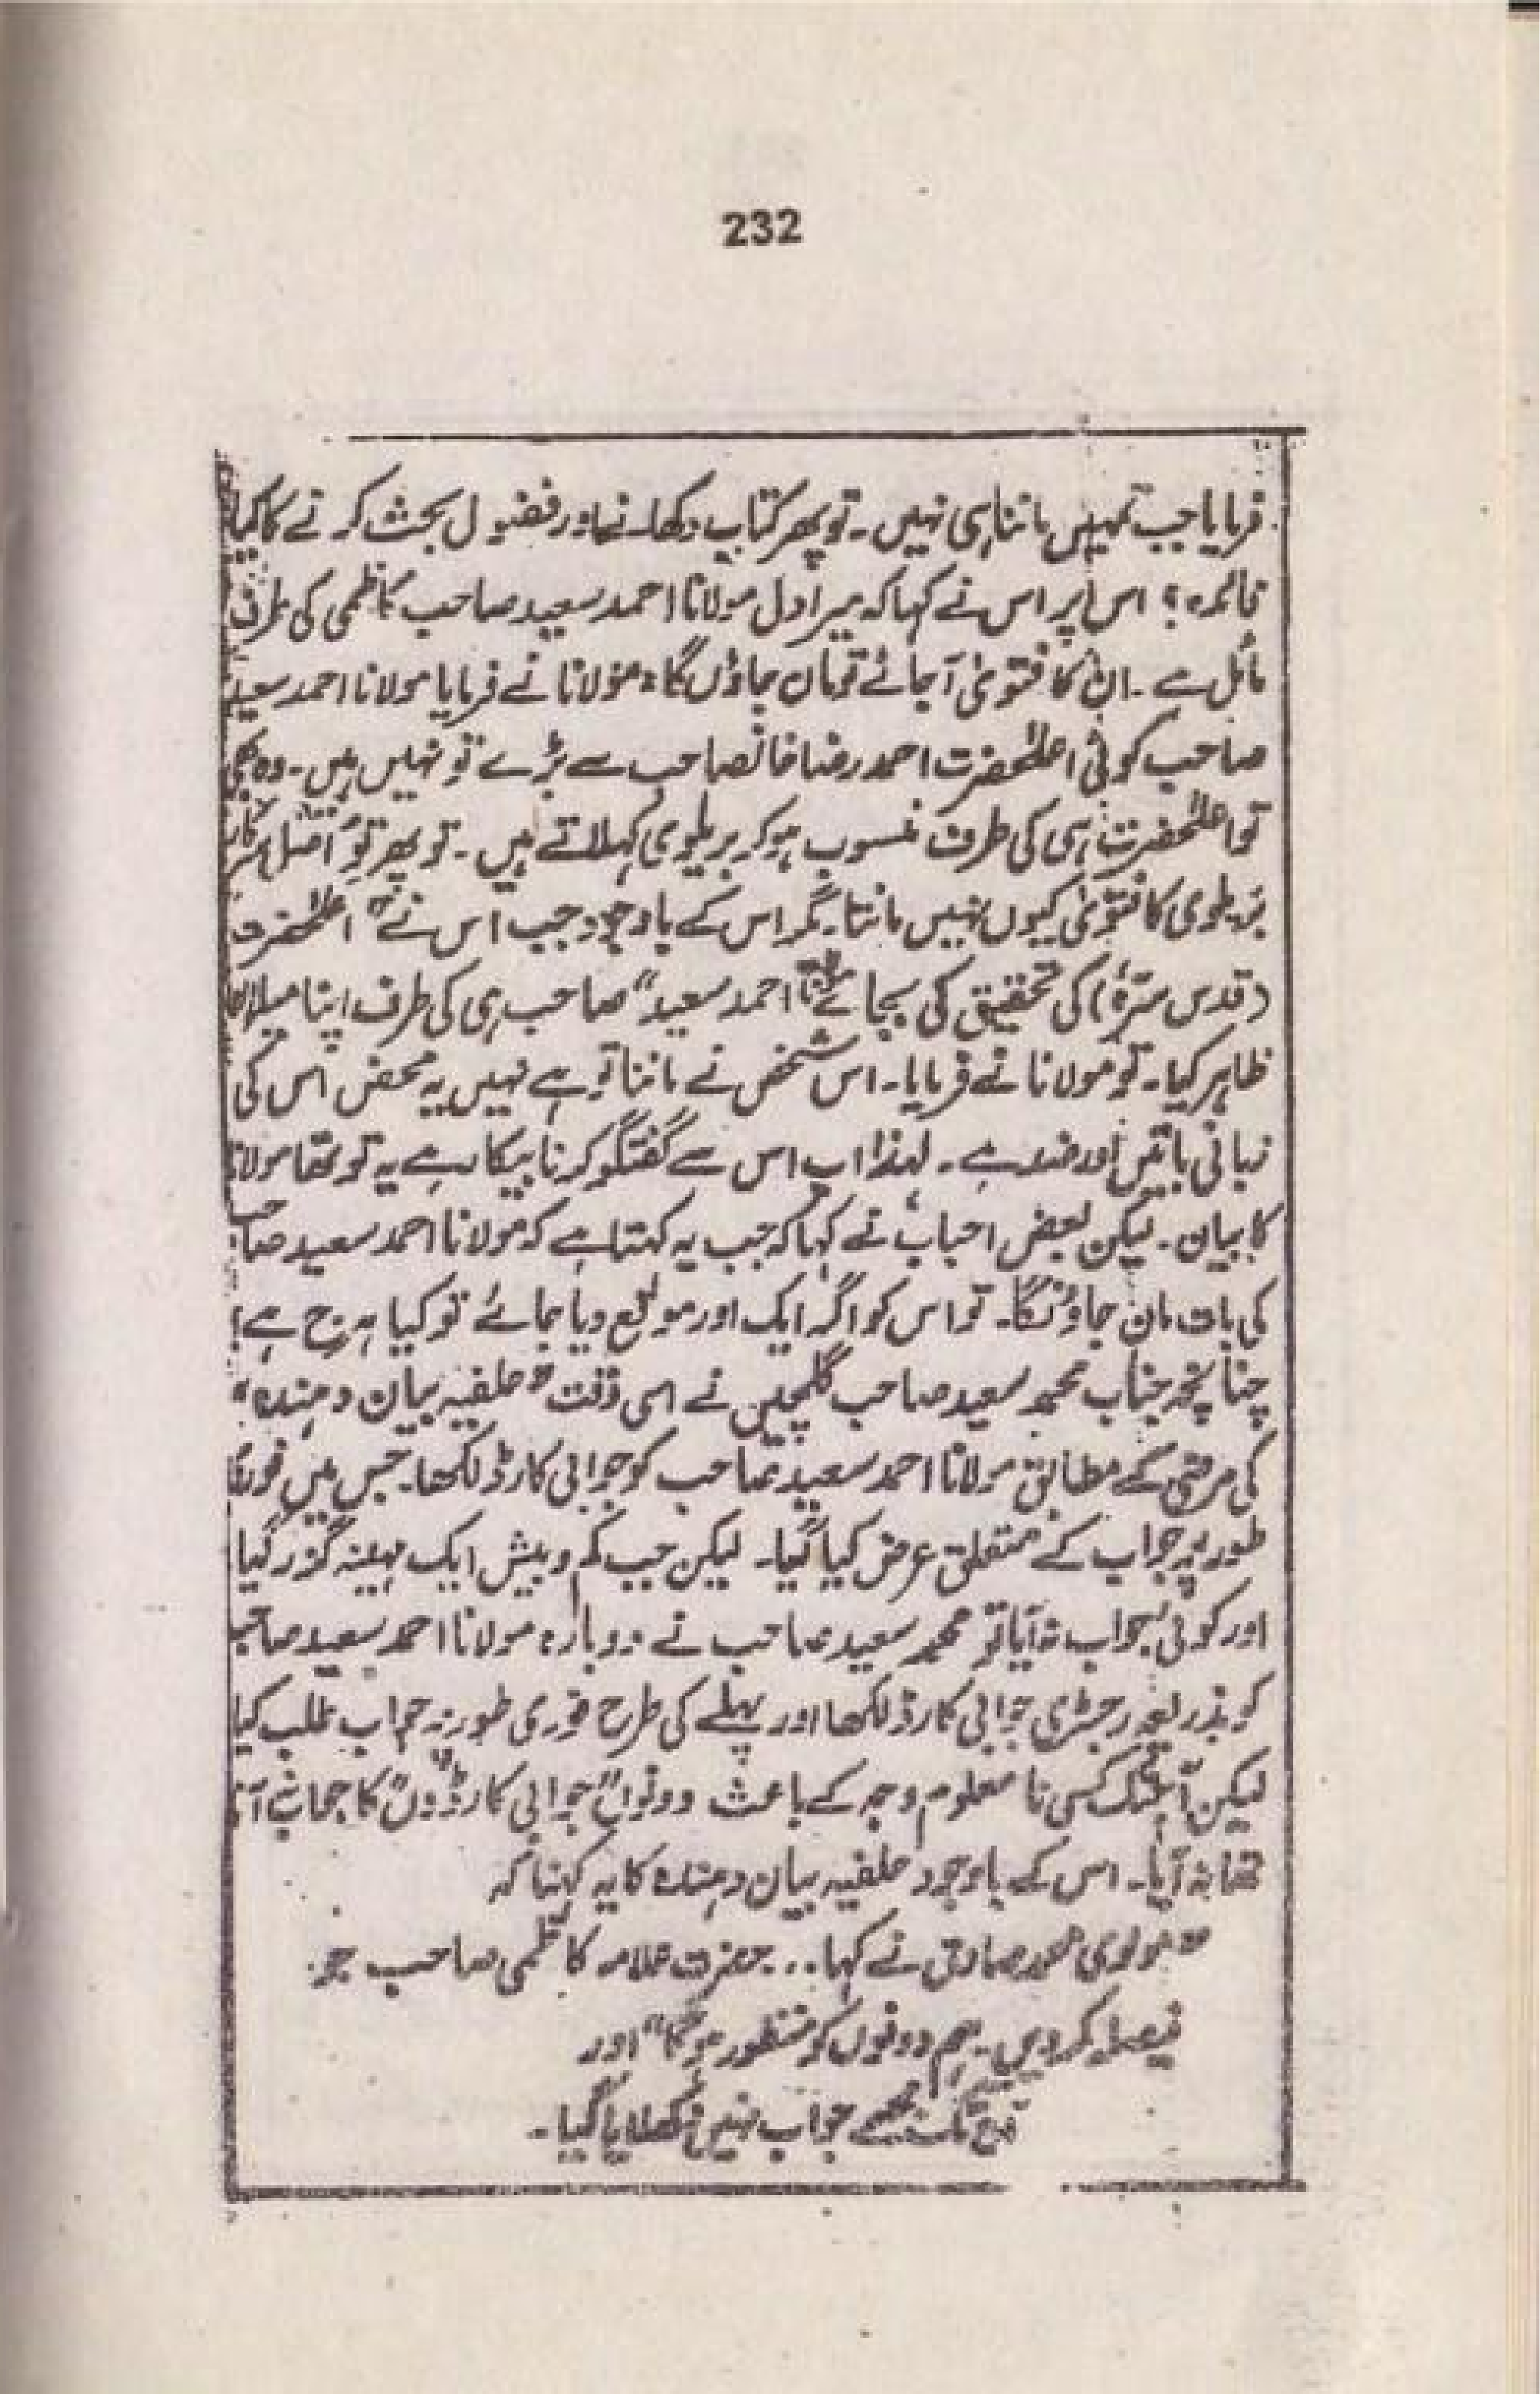 232
فرمایا جب تمہیں ماننا ہی نہیں۔ تو پھر کتاب دکھانے اور فضول بحث کرنے کا کیا
فائدہ؟ اس پر اس نے کہا کہ میرا دل مولانا احمد سعید صاحب کاظمی کی طرف
مائل ہے۔ ان کا فتویٰ آ جائے تو مان جاؤں گا، مولانا نے فرمایا مولانا احمد سعید
صاحب کوئی اعلیٰحضرت احمد رضا خانصاحب سے بڑے تو نہیں ہیں۔ وہ بھی
تو اعلیٰحضرت ہی کی طرف منسوب ہو کر بریلوی کہلاتے ہیں۔ تو پھر تو اصل سرکار
بریلوی کا فتویٰ کیوں نہیں مانتا۔ مگر اس کے باوجود جب اس نے "اعلیٰحضرت
(قدس سرہٗ) کی تحقیق کی بجائے مولانا احمد سعید" صاحب ہی کی طرف اپنا میلان
ظاہر کیا۔ تو مولانا نے فرمایا۔ اس شخص نے ماننا تو ہے نہیں یہ محض اس کی
زبانی باتیں اور ضد ہے۔ لہذا اب اس سے گفتگو کرنا بیکار ہے یہ تو تھا مولانا
کا بیان۔ لیکن بعض احباب نے کہا کہ جب یہ کہتا ہے کہ مولانا احمد سعید صاحب
کی بات مان جاؤنگا۔ تو اس کو اگر ایک اور موقع دیا جائے تو کیا ہرج ہے!
چنانچہ جناب محمد سعید صاحب گلچیں نے اسی وقت "حلفیہ بیان دہندہ"
کی مرضی کے مطابق مولانا احمد سعید صاحب کو جوابی کارڈ لکھا۔ جس میں فوری
طور پر جواب کے متعلق عرض کیا گیا۔ لیکن جب کم و بیش ایک مہینہ گزر گیا
اور کوئی جواب نہ آیا تو محمد سعید صاحب نے دوبارہ مولانا احمد سعید صاحب
کو بذریعہ رجسٹری جوابی کارڈ لکھا اور پہلے کی طرح فوری طور پر جواب طلب کیا
لیکن آجتک کسی نا معلوم وجہ کے باعث دونوں "جوابی کارڈوں" کا جواب نہ آنا
تھا نہ آیا۔ اس کے باوجود حلفیہ بیان دہندہ کا یہ کہنا کہ
"مولوی محمد صادق نے کہا... حضرت علامہ کاظمی صاحب جو
فیصلہ کر دیں۔ ہم دونوں کو منظور ہوگا" اور
آج تک مجھے جواب نہیں دکھلایا گیا۔